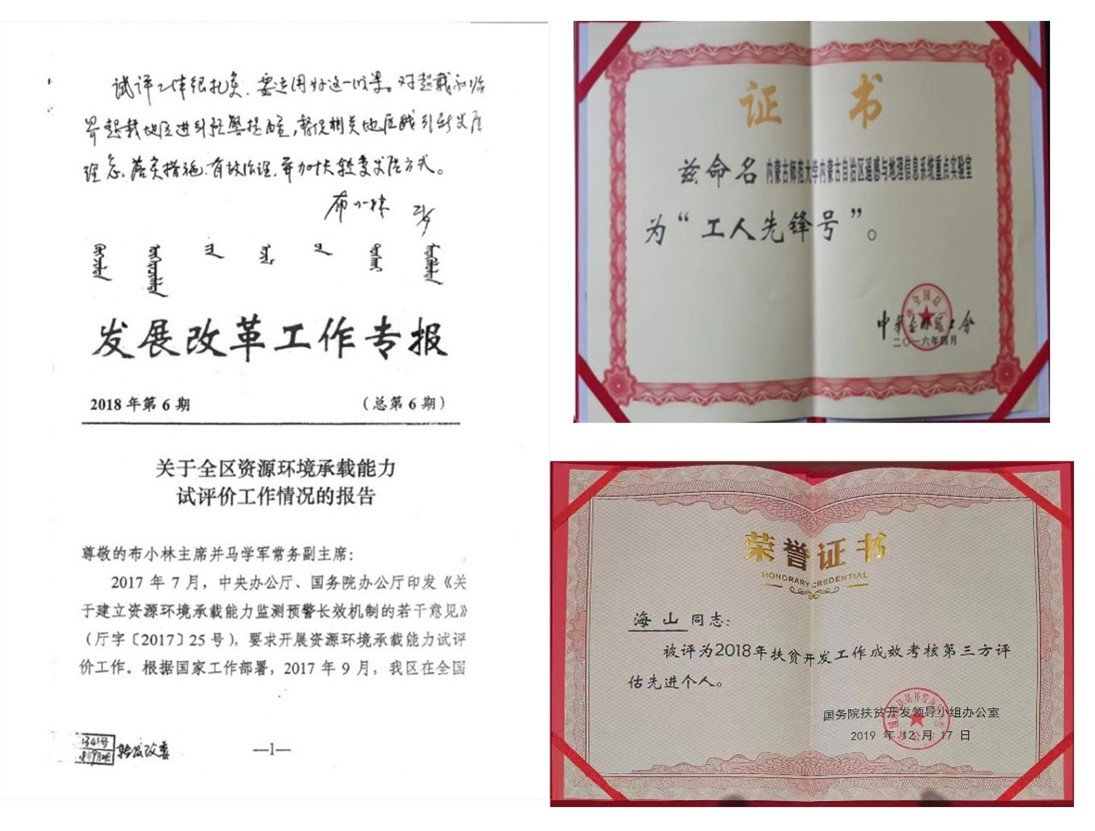 试评工作很扎实,要运用好这一成果。对超载和临
界超载地区进行预警提醒,督促相关地区践行新发展
理念,落实措施,有效治理,并加快转变发展方式。
布小林
发展改革工作专报
2018 年第 6 期 (总第 6 期)
关于全区资源环境承载能力
试评价工作情况的报告
尊敬的布小林主席并马学军常务副主席:
2017 年 7 月,中央办公厅、国务院办公厅印发《关
于建立资源环境承载能力监测预警长效机制的若干意见》
(厅字〔2017〕25 号),要求开展资源环境承载能力试评
价工作。根据国家工作部署,2017 年 9 月,我区在全国
转发改委
—1—
证书
兹命名 内蒙古师范大学内蒙古自治区遥感与地理信息系统重点实验室
为“工人先锋号”。
中华全国总工会
二〇一六年四月
荣誉证书
HONORARY CREDENTIAL
海山 同志:
被评为2018年扶贫开发工作成效考核第三方评
估先进个人。
国务院扶贫开发领导小组办公室
2019 年 12 月 17 日